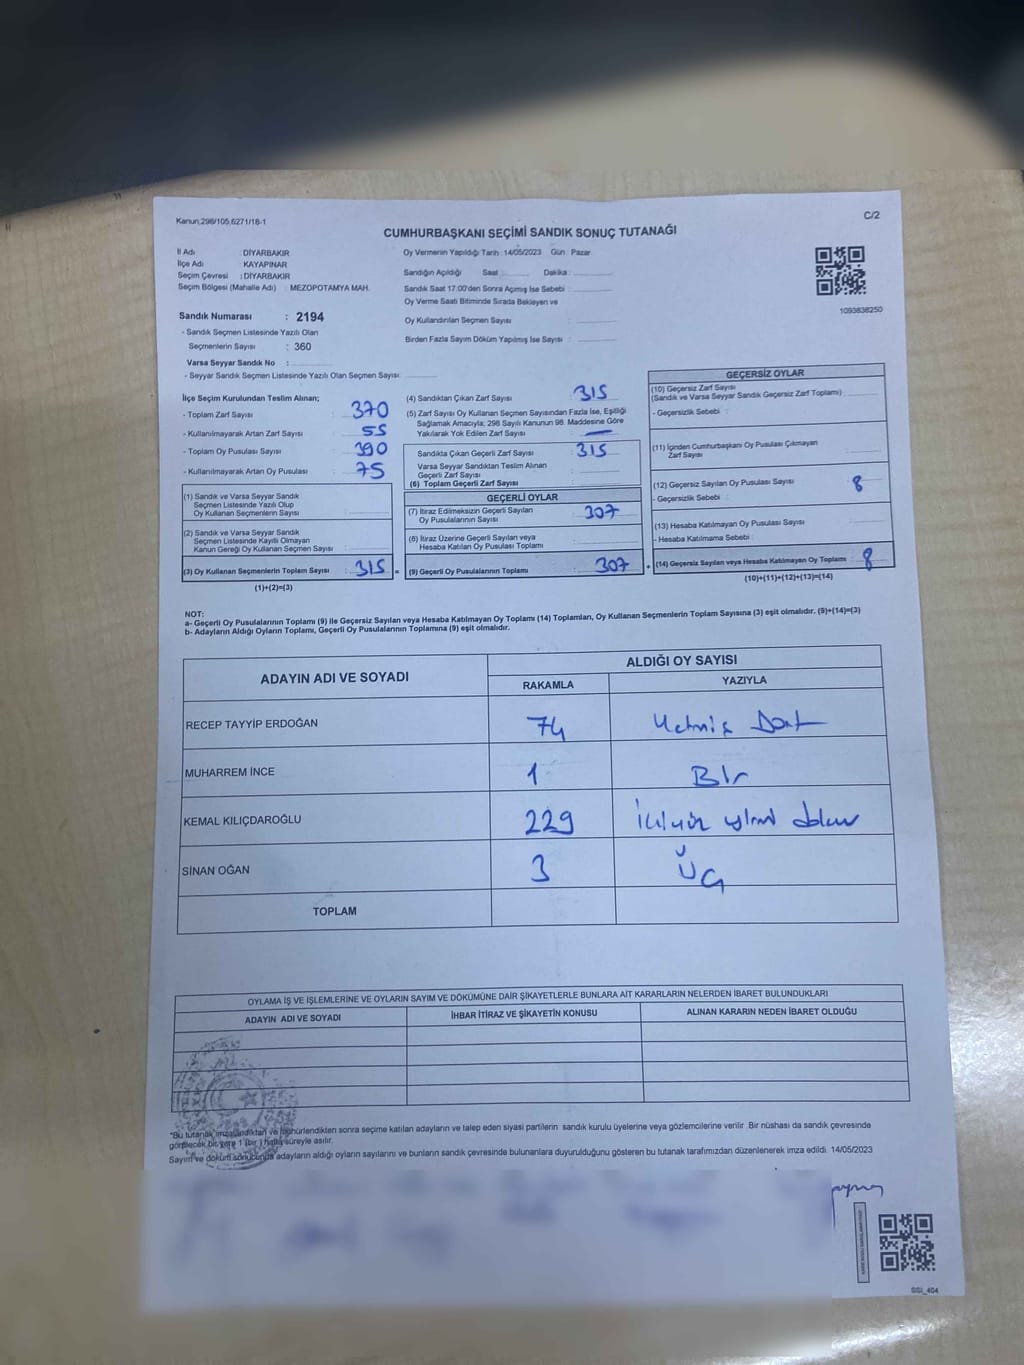 Kanun,298/105,6271/18-1
C/2
CUMHURBAŞKANI SEÇİMİ SANDIK SONUÇ TUTANAĞI
İl Adı : DİYARBAKIR
İlçe Adı : KAYAPINAR
Seçim Çevresi : DİYARBAKIR
Seçim Bölgesi (Mahalle Adı) : MEZOPOTAMYA MAH.
Oy Vermenin Yapıldığı Tarih : 14/05/2023 Gün : Pazar
Sandığın Açıldığı Saat : Dakika :
Sandık Saat 17:00'den Sonra Açımış İse Sebebi :
Oy Verme Saati Bitiminde Sırada Bekleyen ve
Oy Kullandırılan Seçmen Sayısı :
Birden Fazla Sayım Döküm Yapılmış İse Sayısı :
1093838250
Sandık Numarası : 2194
- Sandık Seçmen Listesinde Yazılı Olan
Seçmenlerin Sayısı : 360
Varsa Seyyar Sandık No :
- Seyyar Sandık Seçmen Listesinde Yazılı Olan Seçmen Sayısı:
İlçe Seçim Kurulundan Teslim Alınan;
- Toplam Zarf Sayısı : 370
- Kullanılmayarak Artan Zarf Sayısı : 55
- Toplam Oy Pusulası Sayısı : 390
- Kullanılmayarak Artan Oy Pusulası : 75
(1) Sandık ve Varsa Seyyar Sandık
Seçmen Listesinde Yazılı Olup
Oy Kullanan Seçmenlerin Sayısı :
(2) Sandık ve Varsa Seyyar Sandık
Seçmen Listesinde Kayıtlı Olmayan
Kanun Gereği Oy Kullanan Seçmen Sayısı :
(3) Oy Kullanan Seçmenlerin Toplam Sayısı : 315 =
(1)+(2)=(3)
(4) Sandıktan Çıkan Zarf Sayısı : 315
(5) Zarf Sayısı Oy Kullanan Seçmen Sayısından Fazla İse, Eşitliği
Sağlamak Amacıyla; 298 Sayılı Kanunun 98. Maddesine Göre
Yakılarak Yok Edilen Zarf Sayısı : —
Sandıkta Çıkan Geçerli Zarf Sayısı : 315
Varsa Seyyar Sandıktan Teslim Alınan
Geçerli Zarf Sayısı :
(6) Toplam Geçerli Zarf Sayısı :
GEÇERLİ OYLAR
(7) İtiraz Edilmeksizin Geçerli Sayılan
Oy Pusulalarının Sayısı : 307
(8) İtiraz Üzerine Geçerli Sayılan veya
Hesaba Katılan Oy Pusulası Toplamı :
(9) Geçerli Oy Pusulalarının Toplamı : 307 +
GEÇERSİZ OYLAR
(10) Geçersiz Zarf Sayısı
(Sandık ve Varsa Seyyar Sandık Geçersiz Zarf Toplamı) :
- Geçersizlik Sebebi :
(11) İçinden Cumhurbaşkanı Oy Pusulası Çıkmayan
Zarf Sayısı :
(12) Geçersiz Sayılan Oy Pusulası Sayısı : 8
- Geçersizlik Sebebi :
(13) Hesaba Katılmayan Oy Pusulası Sayısı :
- Hesaba Katılmama Sebebi :
(14) Geçersiz Sayılan veya Hesaba Katılmayan Oy Toplamı : 8
(10)+(11)+(12)+(13)=(14)
NOT:
a- Geçerli Oy Pusulalarının Toplamı (9) ile Geçersiz Sayılan veya Hesaba Katılmayan Oy Toplamı (14) Toplamları, Oy Kullanan Seçmenlerin Toplam Sayısına (3) eşit olmalıdır. (9)+(14)=(3)
b- Adayların Aldığı Oyların Toplamı, Geçerli Oy Pusulalarının Toplamına (9) eşit olmalıdır.
ADAYIN ADI VE SOYADI
ALDIĞI OY SAYISI
RAKAMLA YAZIYLA
RECEP TAYYİP ERDOĞAN 74 Yetmiş Dört
MUHARREM İNCE 1 Bir
KEMAL KILIÇDAROĞLU 229 İkiyüz yirmi dokuz
SİNAN OĞAN 3 ÜÇ
TOPLAM
OYLAMA İŞ VE İŞLEMLERİNE VE OYLARIN SAYIM VE DÖKÜMÜNE DAİR ŞİKAYETLERLE BUNLARA AİT KARARLARIN NELERDEN İBARET BULUNDUKLARI
ADAYIN ADI VE SOYADI İHBAR İTİRAZ VE ŞİKAYETİN KONUSU ALINAN KARARIN NEDEN İBARET OLDUĞU
"Bu tutanak imzalandıktan ve mühürlendikten sonra seçime katılan adayların ve talep eden siyasi partilerin sandık kurulu üyelerine veya gözlemcilerine verilir .Bir nüshası da sandık çevresinde
görülecek bir yere 1 (bir ) hafta süreyle asılır.
Sayım ve döküm sonucunda adayların aldığı oyların sayılarını ve bunların sandık çevresinde bulunanlara duyurulduğunu gösteren bu tutanak tarafımızdan düzenlenerek imza edildi. 14/05/2023